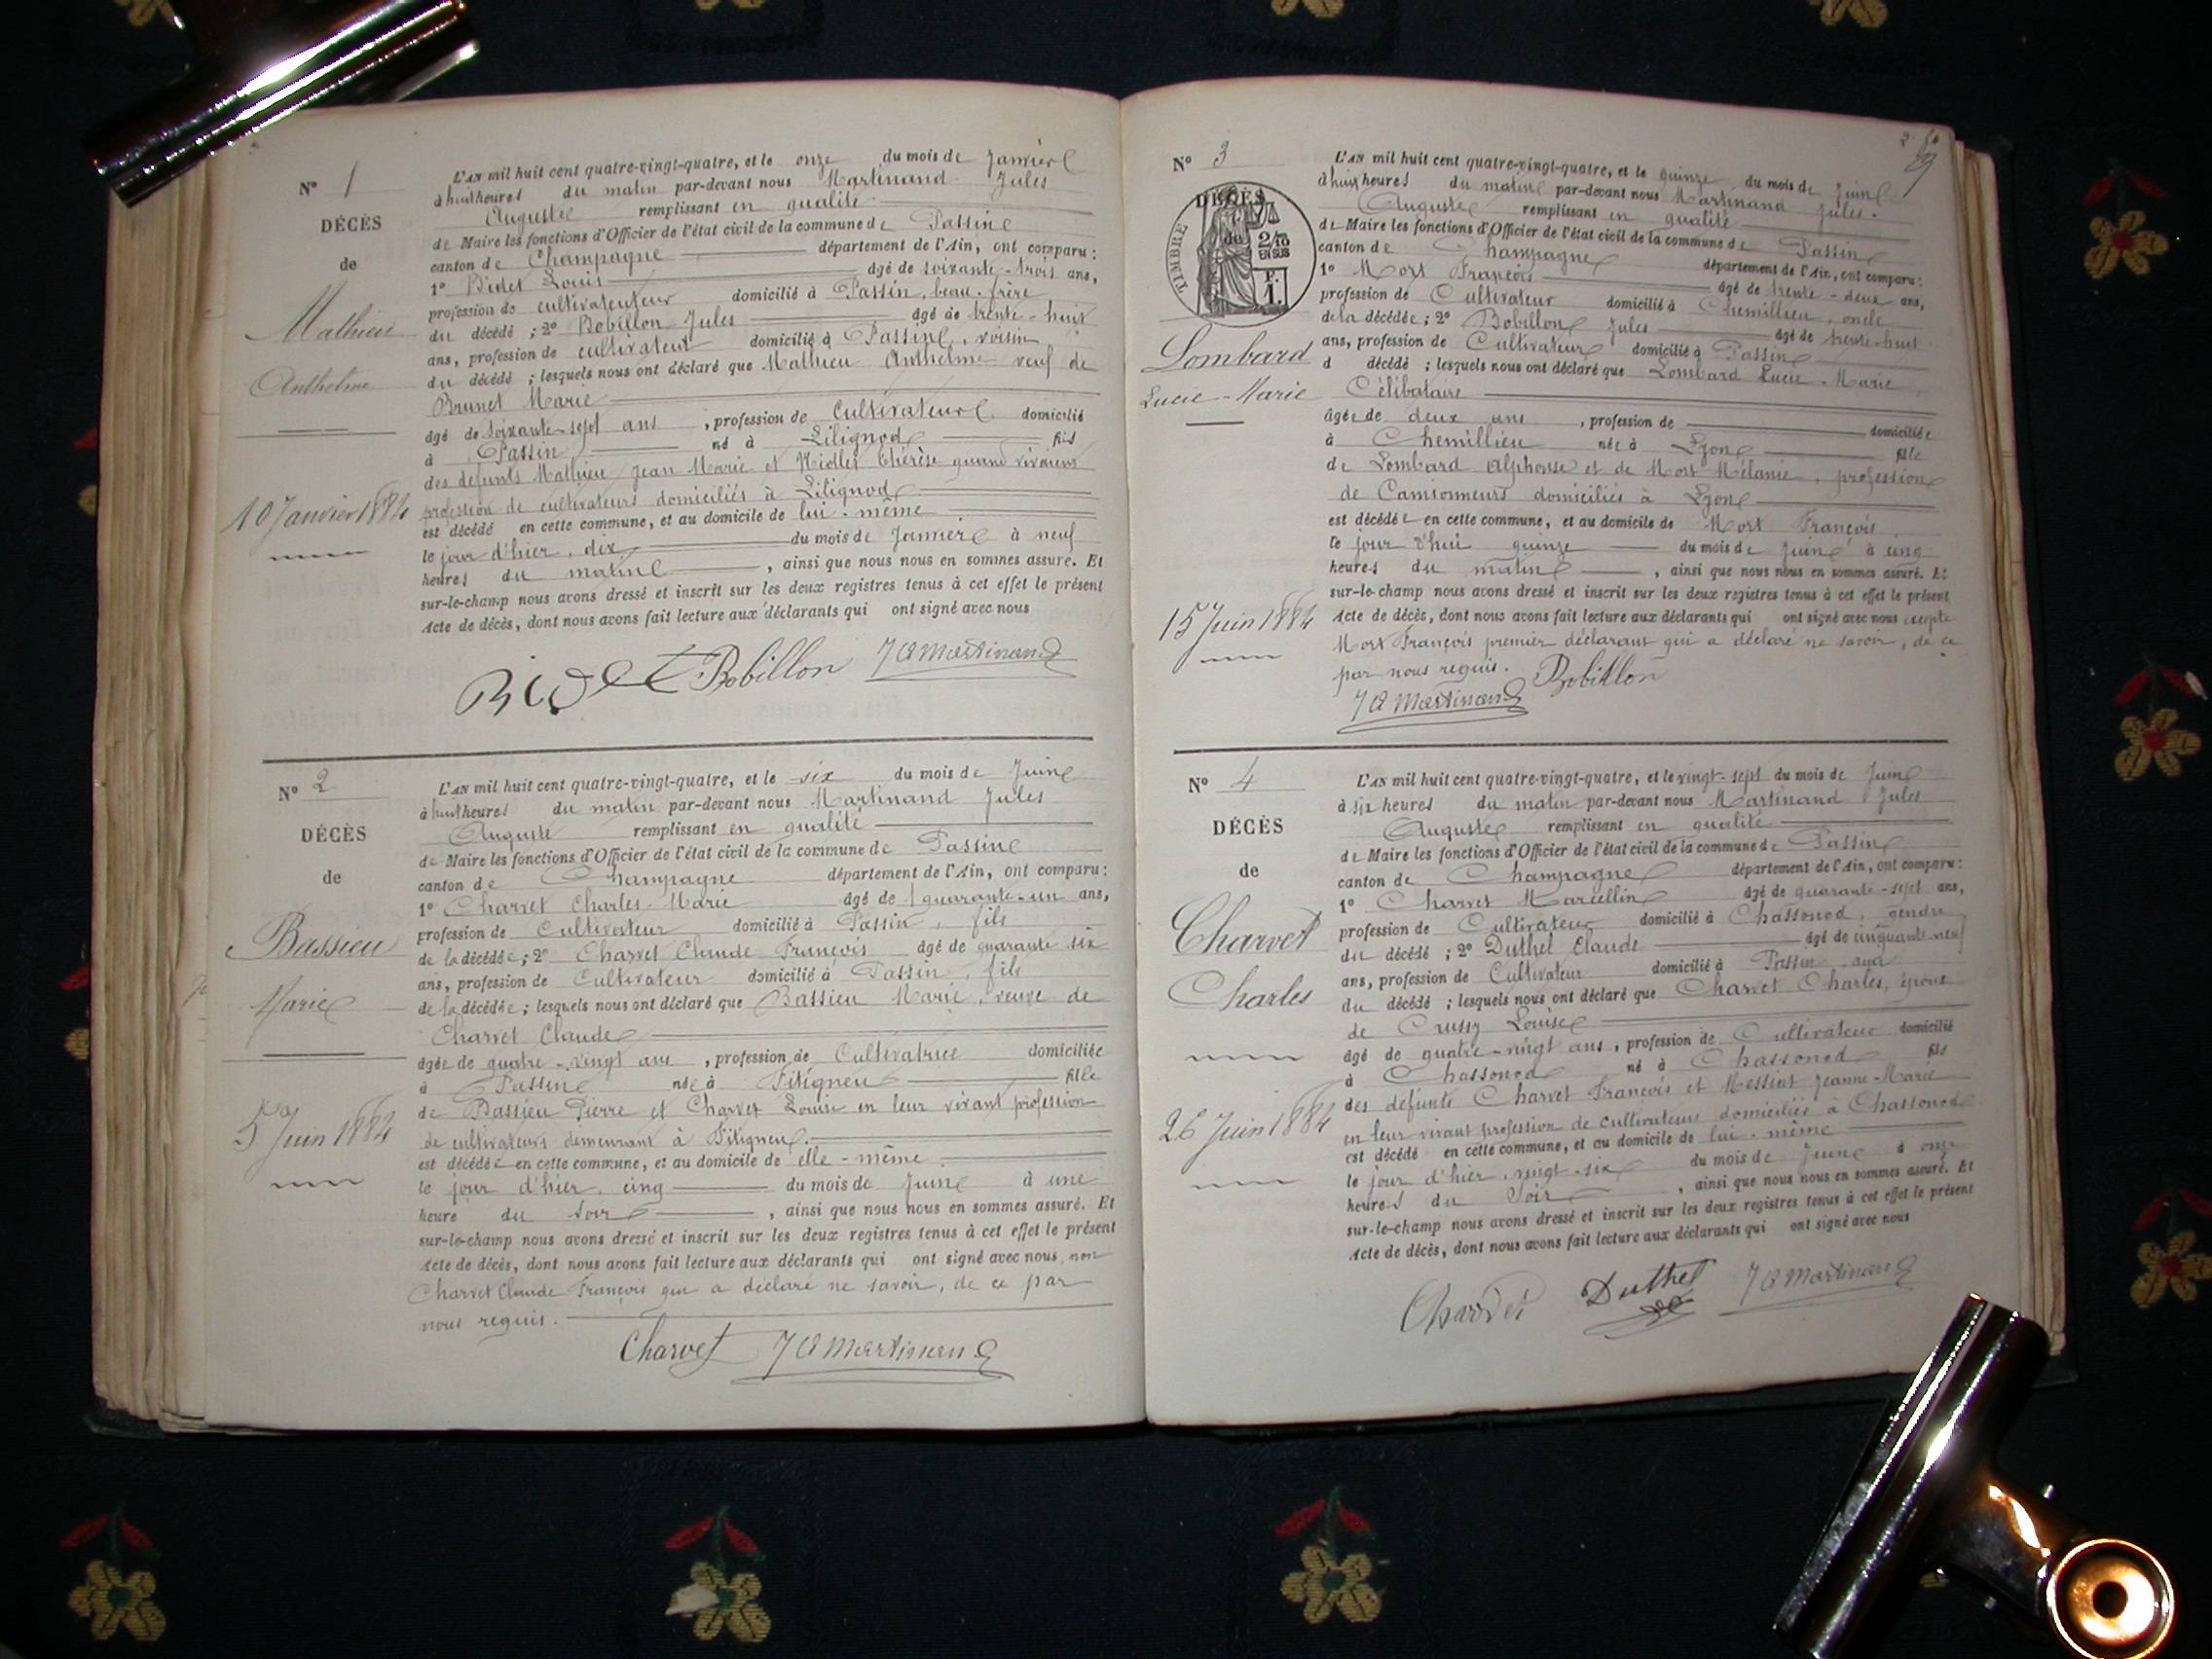 N° 1
DÉCÈS
de
Mathieu
Anthelme
10 Janvier 1884
L'AN mil huit cent quatre-vingt-quatre, et le onze du mois de Janvier
à huit heures du matin par-devant nous Martinand Jules
Auguste remplissant en qualité
de Maire les fonctions d'Officier de l'état civil de la commune de Passin
canton de Champagne département de l'Ain, ont comparu :
1° Bidet Louis âgé de soixante-trois ans,
profession de cultivateur domicilié à Passin, beau-frère
du décédé ; 2° Bobillon Jules âgé de trente-huit
ans, profession de cultivateur domicilié à Passin, voisin
du décédé ; lesquels nous ont déclaré que Mathieu Anthelme veuf de
Brunet Marie
âgé de soixante-sept ans, profession de Cultivateur domicilié
à Passin né à Lilignod fils
des défunts Mathieu Jean Marie et Thérèse quand vivaient
profession de cultivateurs domiciliés à Lilignod
est décédé en cette commune, et au domicile de lui-même
le jour d'hier, dix du mois de Janvier à neuf
heures du matin, ainsi que nous nous en sommes assuré. Et
sur-le-champ nous avons dressé et inscrit sur les deux registres tenus à cet effet le présent
Acte de décès, dont nous avons fait lecture aux déclarants qui ont signé avec nous
Bidet Bobillon J A Martinand
N° 2
DÉCÈS
de
Bassieu
Marie
5 Juin 1884
L'AN mil huit cent quatre-vingt-quatre, et le six du mois de Juin
à huit heures du matin par-devant nous Martinand Jules
Auguste remplissant en qualité
de Maire les fonctions d'Officier de l'état civil de la commune de Passin
canton de Champagne département de l'Ain, ont comparu :
1° Charvet Charles-Marie âgé de quarante-un ans,
profession de Cultivateur domicilié à Passin, fils
de la décédée ; 2° Charvet Claude François âgé de quarante six
ans, profession de Cultivateur domicilié à Passin, fils
de la décédée ; lesquels nous ont déclaré que Bassieu Marie, veuve de
Charvet Claude
âgée de quatre-vingt ans, profession de Cultivatrice domiciliée
à Passin née à Fitigneu fille
de Bassieu Pierre et Charvet Louise en leur vivant profession
de cultivateurs demeurant à Fitigneu.
est décédée en cette commune, et au domicile de elle-même
le jour d'hier, cinq du mois de Juin à une
heure du soir, ainsi que nous nous en sommes assuré. Et
sur-le-champ nous avons dressé et inscrit sur les deux registres tenus à cet effet le présent
Acte de décès, dont nous avons fait lecture aux déclarants qui ont signé avec nous, non
Charvet Claude François qui a déclaré ne savoir, de ce par
nous requis.
Charvet J A Martinand
N° 3
DÉCÈS
de
TIMBRE
2/10
EN SUS
F.
1.
Lombard
Lucie-Marie
15 Juin 1884
L'AN mil huit cent quatre-vingt-quatre, et le quinze du mois de Juin
à huit heures du matin par-devant nous Martinand Jules
Auguste remplissant en qualité
de Maire les fonctions d'Officier de l'état civil de la commune de Passin
canton de Champagne département de l'Ain, ont comparu :
1° Mort François âgé de trente-deux ans,
profession de Cultivateur domicilié à Chemillieu, oncle
de la décédée ; 2° Bobillon Jules âgé de trente-huit
ans, profession de Cultivateur domicilié à Passin
d décédé ; lesquels nous ont déclaré que Lombard Lucie-Marie,
Célibataire
âgée de deux ans, profession de domiciliée
à Chemillieu née à Lyon fille
de Lombard Alphonse et de Mort Mélanie, profession
de Camionneurs domiciliés à Lyon
est décédée en cette commune, et au domicile de Mort François
le jour d'hui quinze du mois de Juin à cinq
heures du matin, ainsi que nous nous en sommes assuré. Et
sur-le-champ nous avons dressé et inscrit sur les deux registres tenus à cet effet le présent
Acte de décès, dont nous avons fait lecture aux déclarants qui ont signé avec nous excepté
Mort François premier déclarant qui a déclaré ne savoir, de ce
par nous requis. Bobillon
J A Martinand
N° 4
DÉCÈS
de
Charvet
Charles
26 Juin 1884
L'AN mil huit cent quatre-vingt-quatre, et le vingt-sept du mois de Juin
à six heures du matin par-devant nous Martinand Jules
Auguste remplissant en qualité
de Maire les fonctions d'Officier de l'état civil de la commune de Passin
canton de Champagne département de l'Ain, ont comparu :
1° Charvet Marcellin âgé de quarante-sept ans,
profession de Cultivateur domicilié à Chassonod, gendre
du décédé ; 2° Duthel Claude âgé de cinquante-neuf
ans, profession de Cultivateur domicilié à Passin, ami
du décédé ; lesquels nous ont déclaré que Charvet Charles, époux
de Crussy Louise
âgé de quatre-vingt ans, profession de Cultivateur domicilié
à Chassonod né à Chassonod fils
des défunts Charvet François et Messint Jeanne-Marie
en leur vivant profession de cultivateurs domiciliés à Chassonod
est décédé en cette commune, et au domicile de lui-même
le jour d'hier, vingt-six du mois de Juin à onze
heures du Soir, ainsi que nous nous en sommes assuré. Et
sur-le-champ nous avons dressé et inscrit sur les deux registres tenus à cet effet le présent
Acte de décès, dont nous avons fait lecture aux déclarants qui ont signé avec nous
Duthel J A Martinand